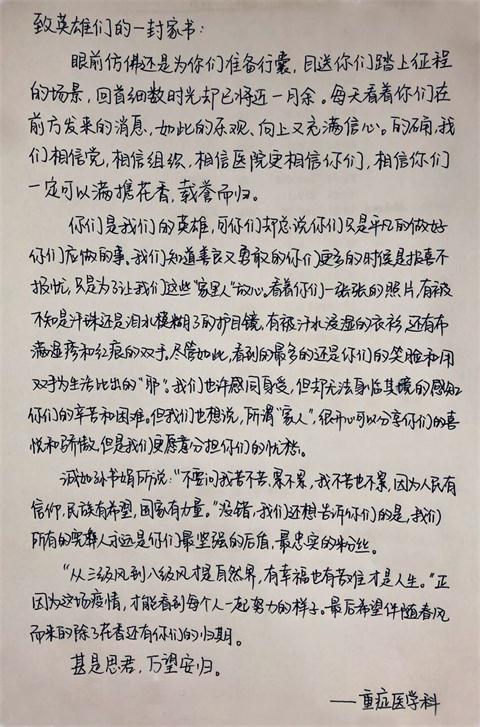 致英雄们的一封家书：
眼前仿佛还是为你们准备行囊，目送你们踏上征程
的场景，回首细数时光却已将近一月余。每天看着你们在
前方发来的消息，如此的乐观、向上又充满信心。的确，我
们相信党，相信组织，相信医院更相信你们，相信你们
一定可以满携花香，载誉而归。
你们是我们的英雄，可你们却总说你们只是平凡的做好
你们应做的事。我们知道善良又勇敢的你们更多的时候是报喜不
报忧，只是为了让我们这些“家里人”放心。看着你们一张张的照片，有被
不知是汗珠还是泪水模糊了的护目镜，有被汗水浸湿的衣衫，还有布
满湿疹和红痕的双手。尽管如此，看到的最多的还是你们的笑脸和用
双手为生活比出的“耶”。我们也许感同身受，但却无法身临其境的感知
你们的辛苦和困难。但我们也想说，所谓“家人”，很开心可以分享你们的喜
悦和骄傲，但是我们更愿意分担你们的忧愁。
诚如孙书娟所说：“不要问我苦不苦，累不累，我不苦也不累，因为人民有
信仰，民族有希望，国家有力量。”没错，我们还想告诉你们的是，我们
所有的家人永远是你们最坚强的后盾，最忠实的粉丝。
“从三级风到八级风才是自然界，有幸福也有苦难才是人生。”正
因为这场疫情，才能看到每个人一起努力的样子。最后希望伴随春风
而来的除了花香还有你们的归期。
甚是思君，万望安归。
——重症医学科